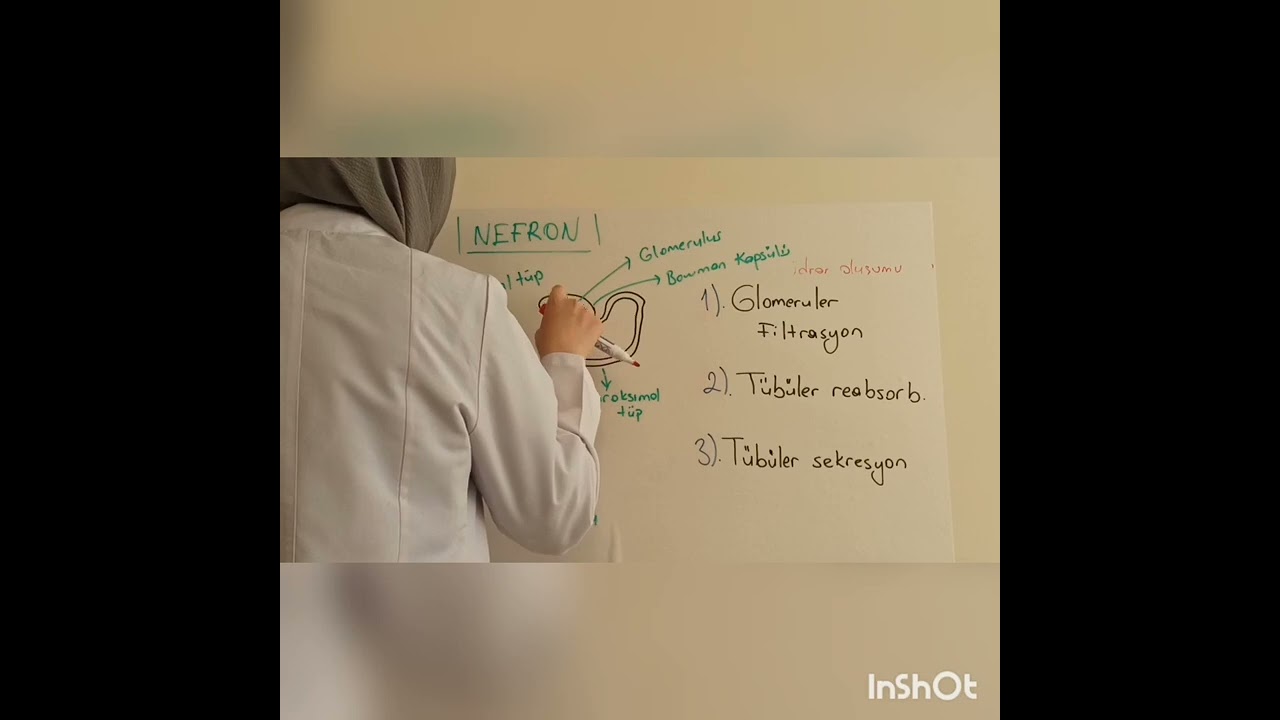 NEFRON
tüp
Glomerulus
Bowman Kapsülü
roksimal
tüp
idrar oluşumu
1). Glomeruler
Filtrasyon
2). Tübüler reabsorb.
3). Tübüler sekresyon
InShOt